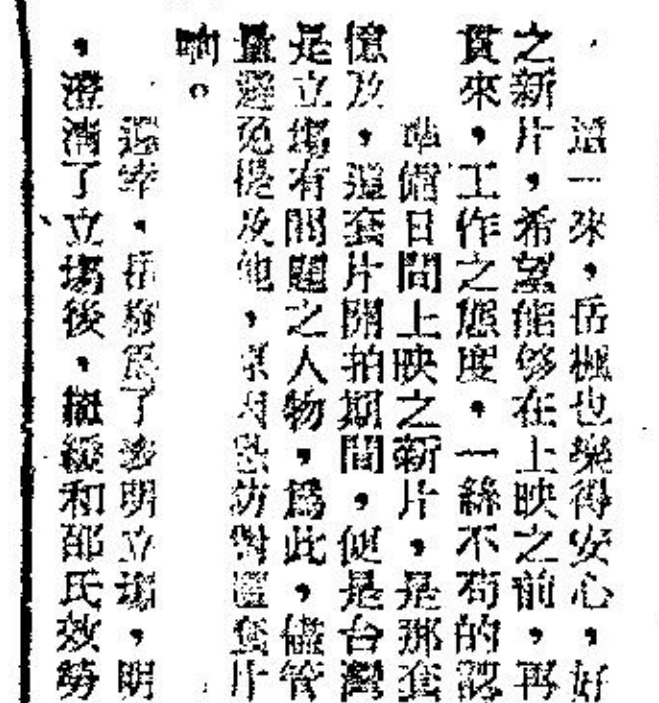 這一來，岳楓也樂得安心，好
之新片，希望能够在上映之前，再
貫來，工作之態度，一絲不苟的認
準備日間上映之新片，是那套
憶及，這套片開拍期間，便是台灣
是立塲有問題之人物，爲此，儘管
量避免提及他，妨對這套片
响。
還幸，岳楓爲了明立塲，明
，澄清了立塲後，繼續和邵氏效勞